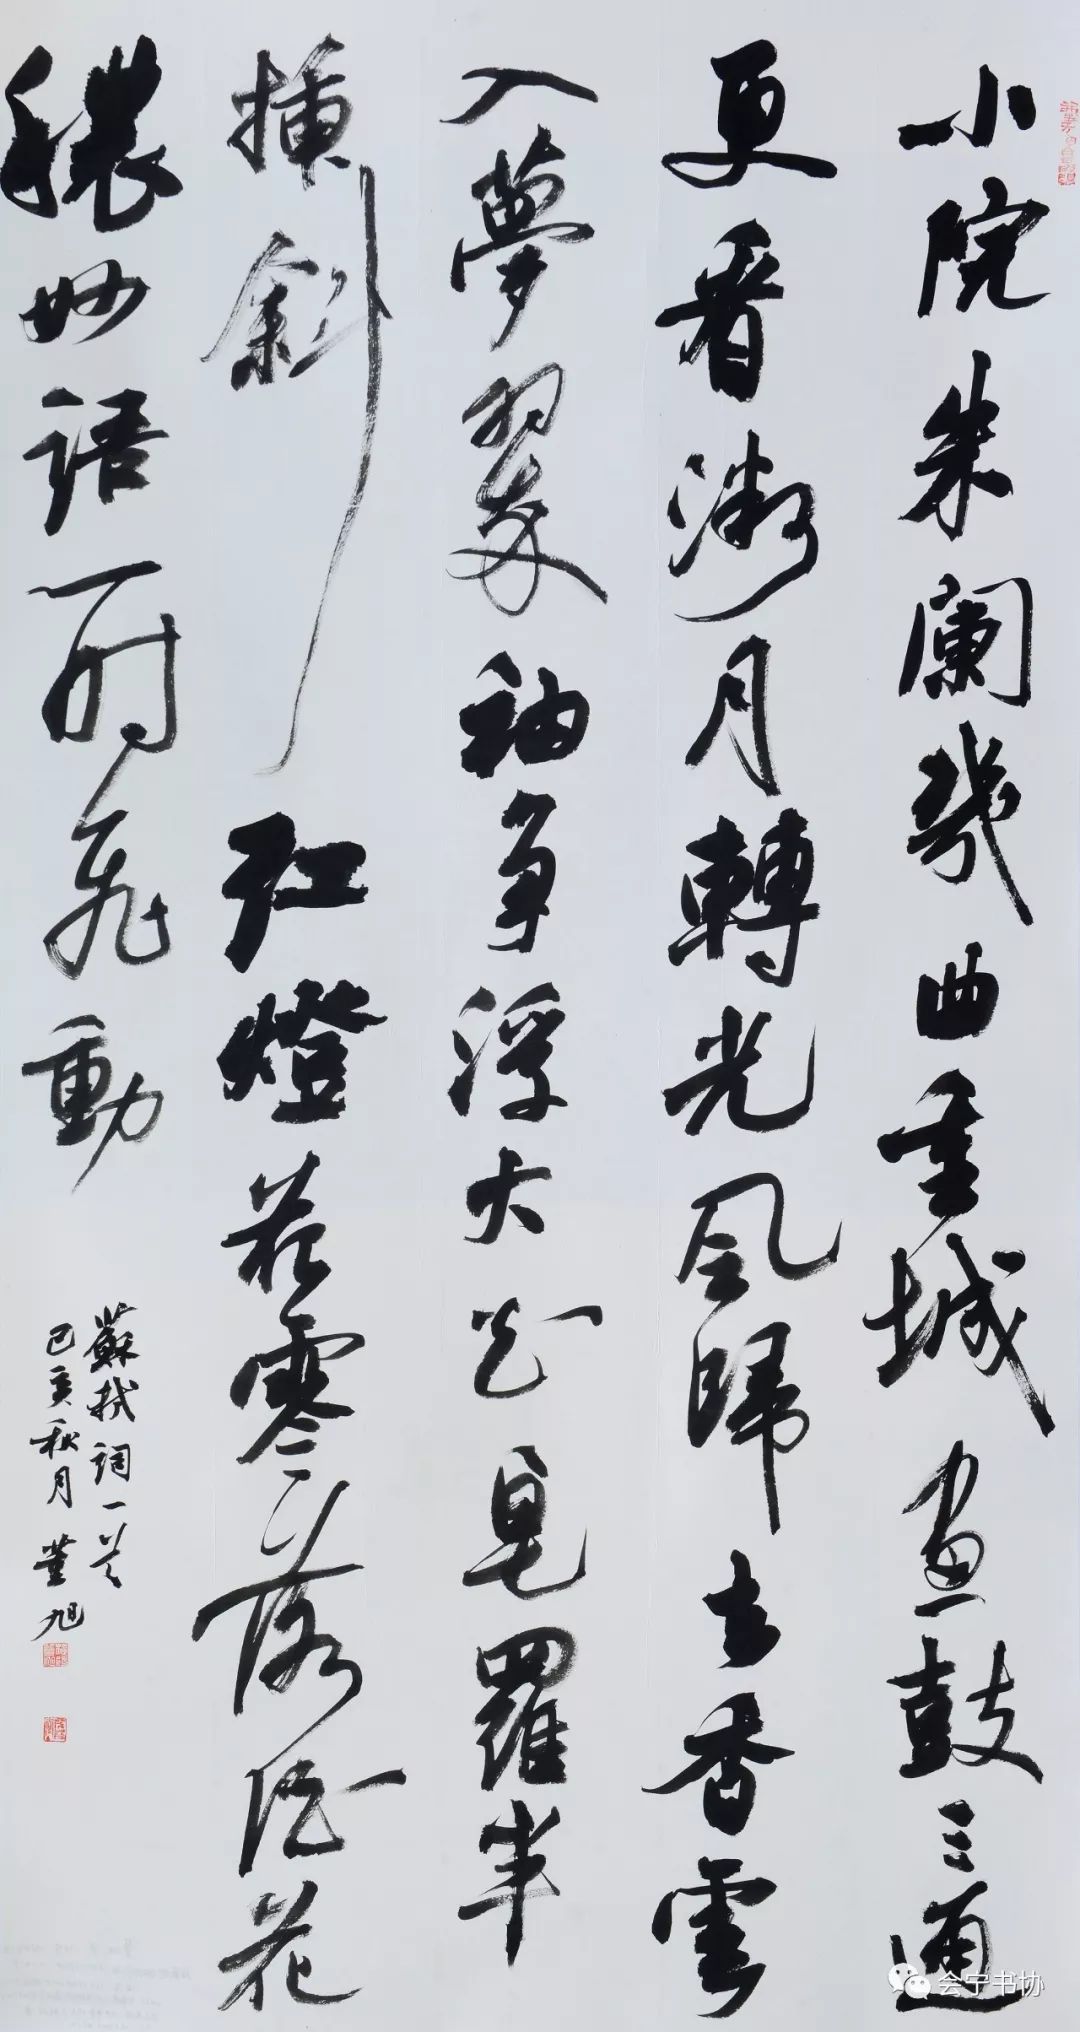 小院朱闌幾曲重城畫鼓三通
更看微月轉光風歸去香雲
入夢翠袖争浮大白皂羅半
插斜紅燈花零落酒花
穠妙語一時飛動
蘇軾詞一首
己亥秋月 董旭
会宁书协